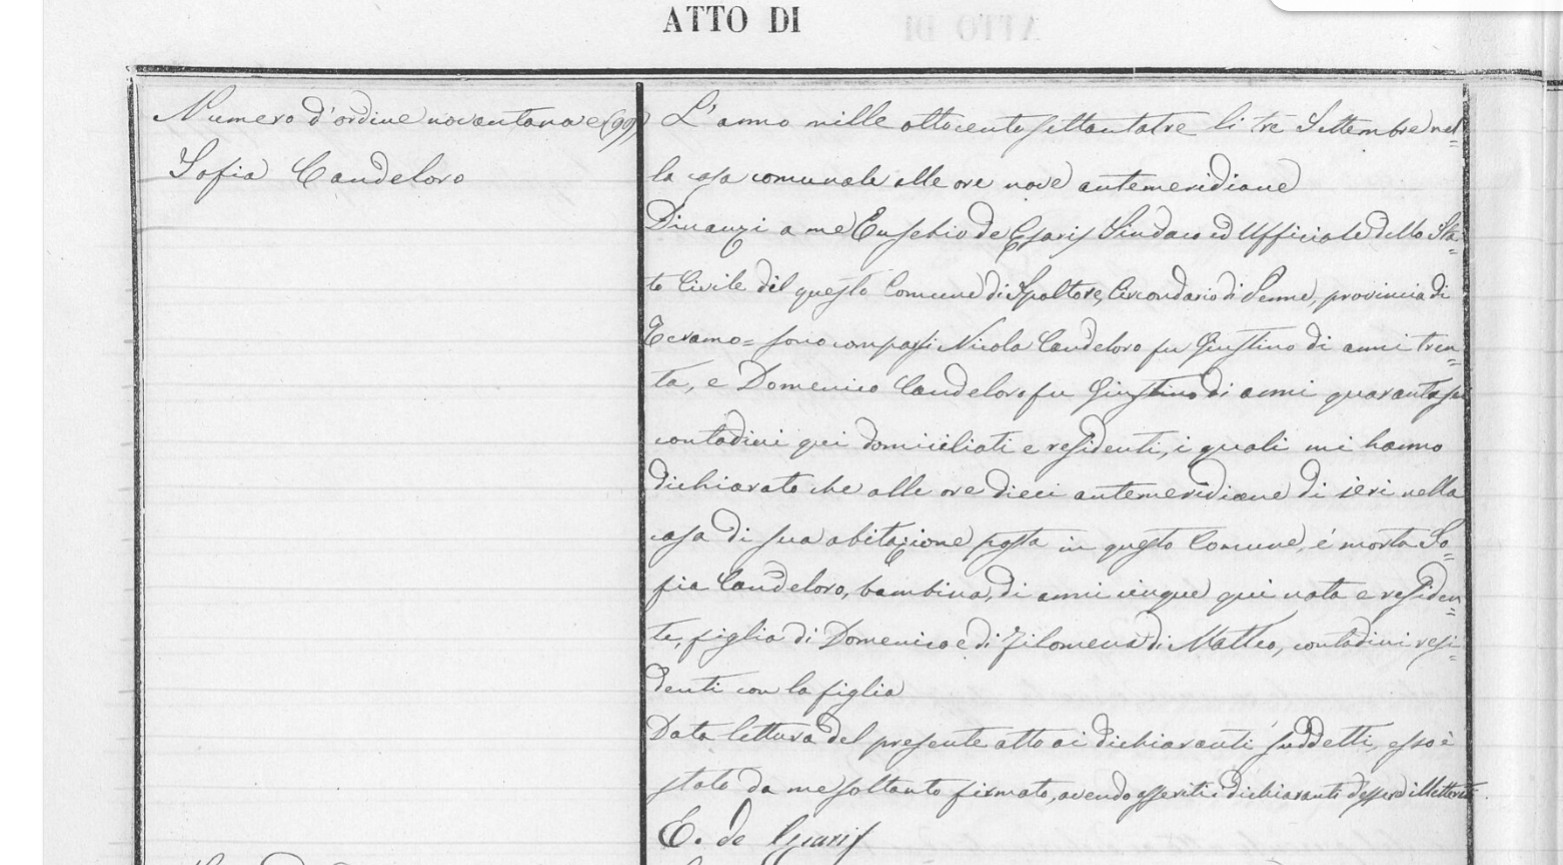 ATTO DI
Numero d'ordine novantanove (99)
Sofia Candeloro
L'anno mille ottocento settantatre li tre Settembre nel=
la casa comunale alle ore nove antemeridiane
Dinanzi a me Eusebio de Cesaris Sindaco ed Ufficiale dello Sta=
to Civile del questo Comune di Spoltore, Circondario di Penne, provincia di
Teramo= sono comparsi Nicola Candeloro fu Giustino di anni tren=
ta, e Domenico Candeloro fu Giustino di anni quarantasei
contadini qui domiciliati e residenti, i quali mi hanno
dichiarato che alle ore dieci antemeridiane di ieri nella
casa di sua abitazione posta in questo Comune, è morta So=
fia Candeloro, bambina, di anni cinque qui nata e residen=
te, figlia di Domenico e di Filomena di Matteo, contadini resi=
denti con la figlia
Data lettura del presente atto ai dichiaranti suddetti, esso è
stato da me soltanto firmato, avendo asseriti i dichiaranti d'essere illetterati.
E. de Cesaris